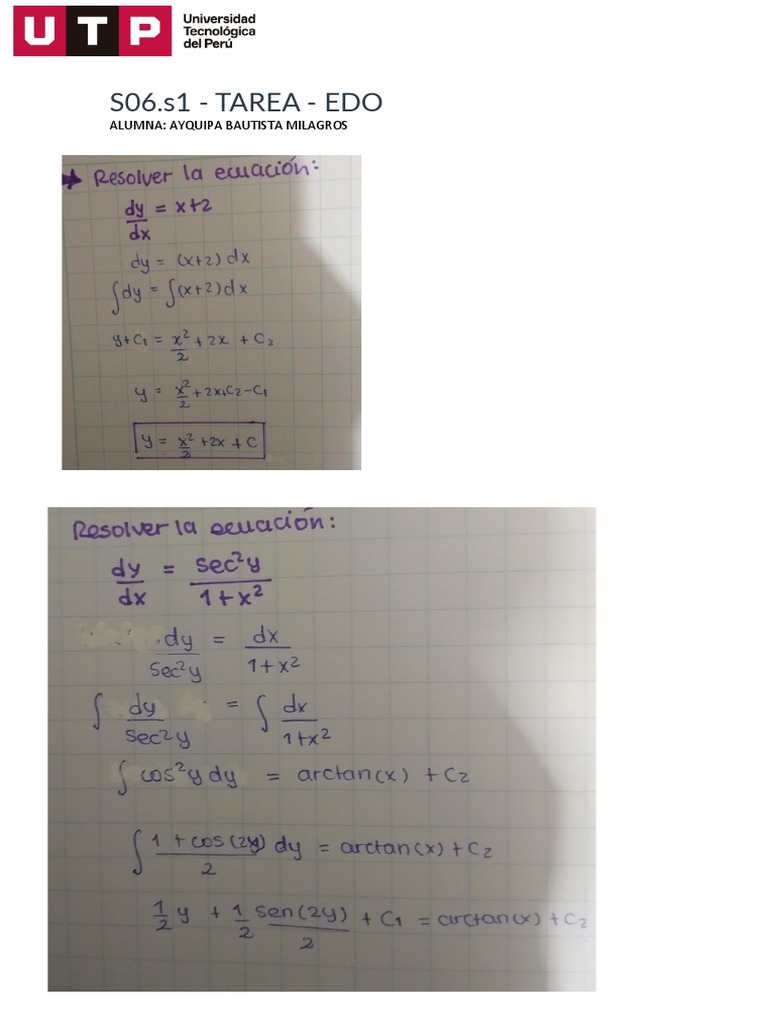 UTP Universidad
Tecnológica
del Perú
S06.s1 - TAREA - EDO
ALUMNA: AYQUIPA BAUTISTA MILAGROS
→ Resolver la ecuación:
dy/dx = x+2
dy = (x+2) dx
∫dy = ∫(x+2) dx
y+C₁ = x²/2 + 2x + C₂
y = x²/2 + 2x+C₂-C₁
y = x²/2 + 2x + C
Resolver la ecuación:
dy/dx = sec²y/1+x²
dy/sec²y = dx/1+x²
∫ dy/sec²y = ∫ dx/1+x²
∫ cos²y dy = arctan(x) + C₂
∫ 1 + cos(2y)/2 dy = arctan(x) + C₂
1/2 y + 1/2 sen(2y)/2 + C₁ = arctan(x) + C₂